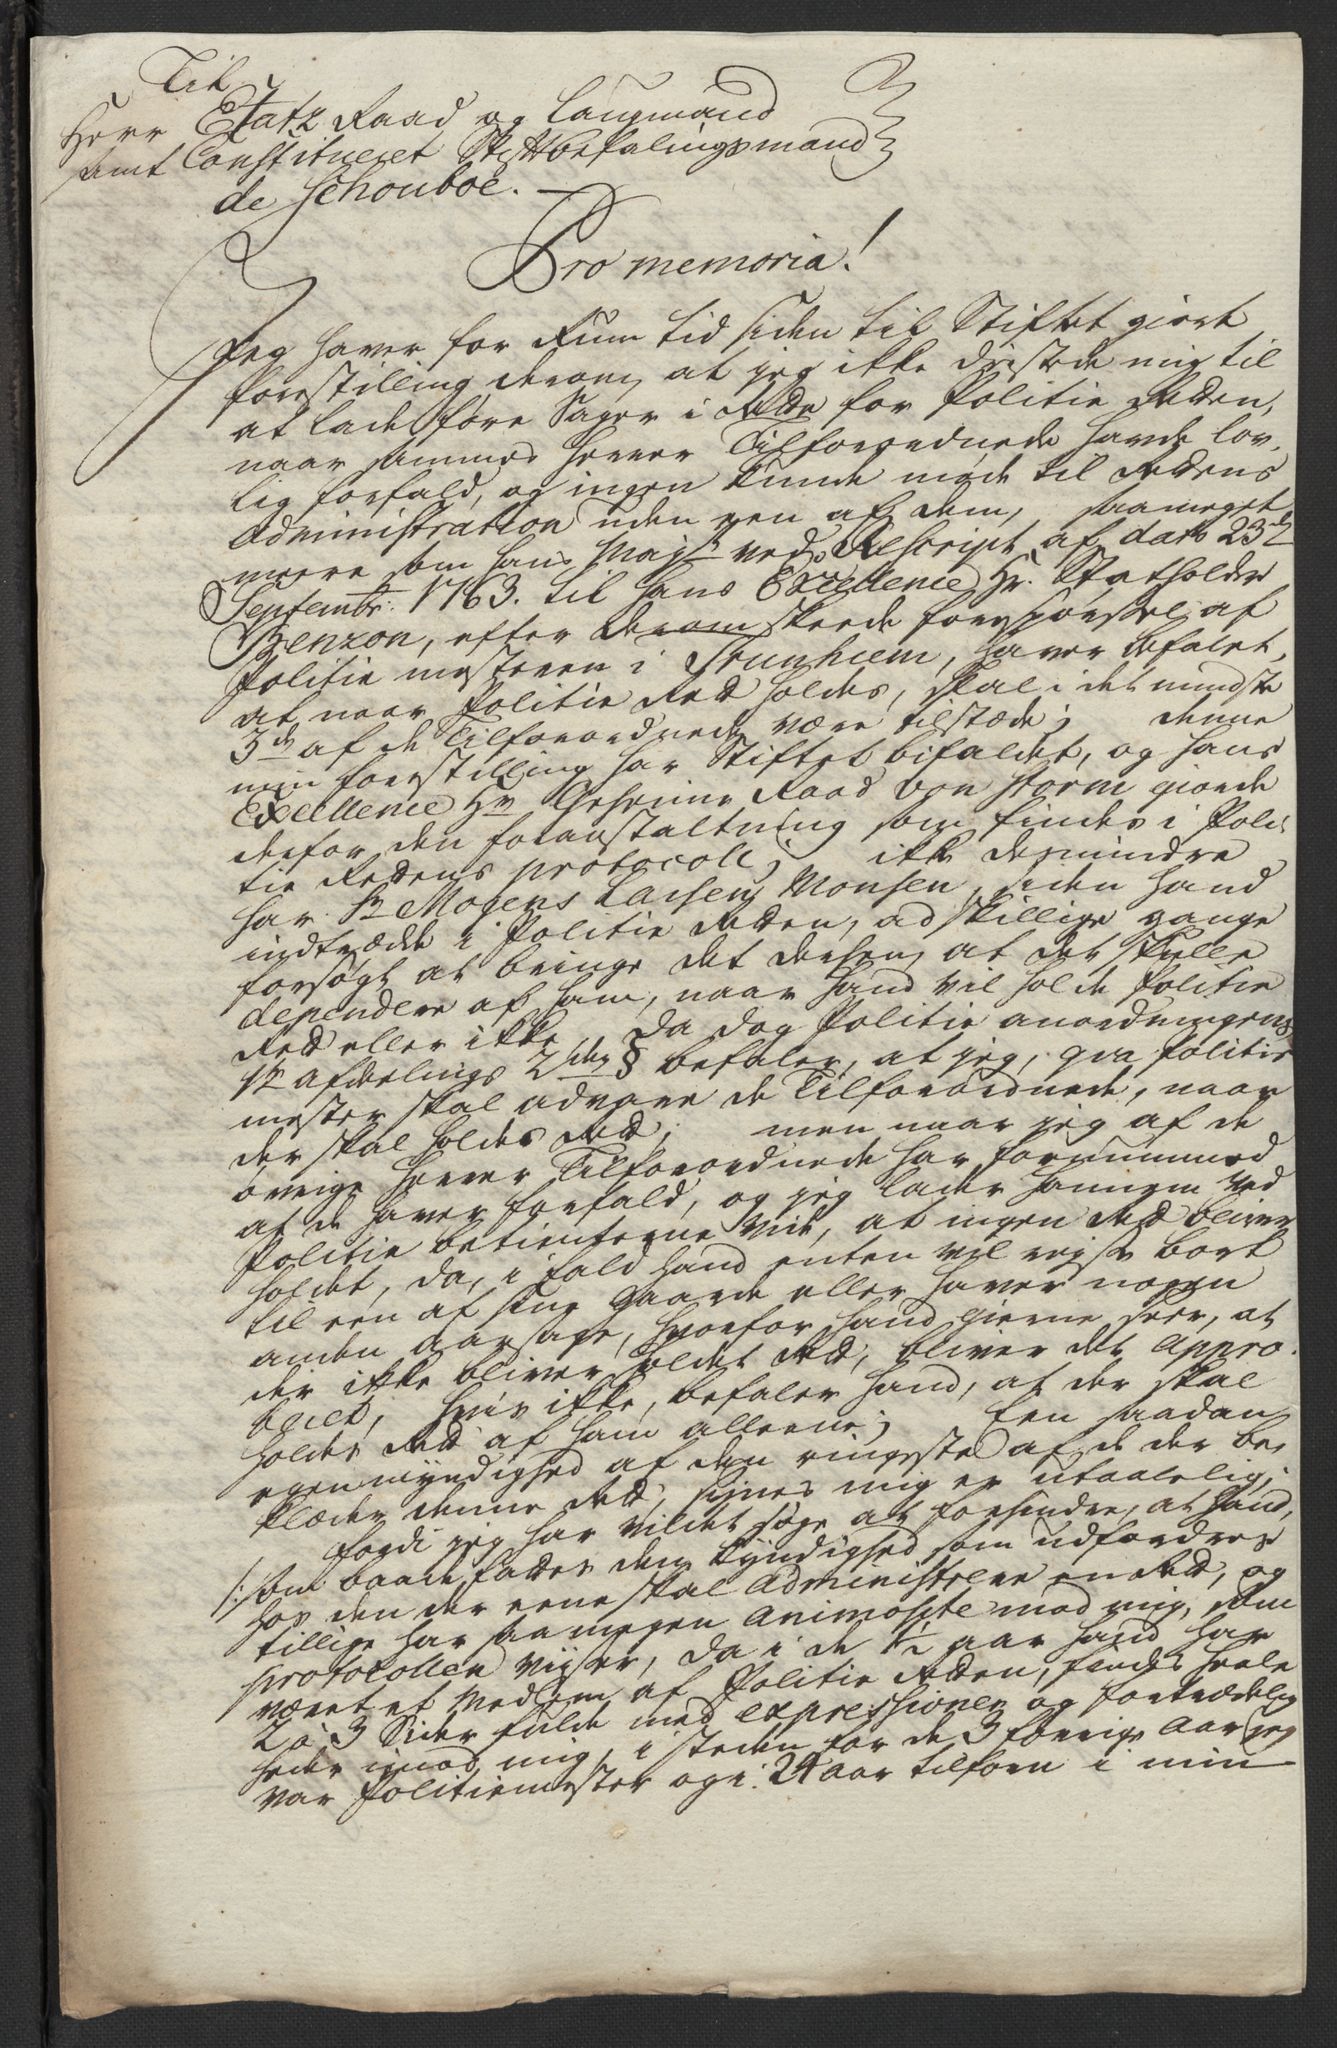 Til
Herr Etatz Raad og Laugmand
samt Constitueret Stiftbefalingsmand
de Schouboe.
Pro memoria!
Jeg haver for Rum tid siden til Stiftet giort
forestilling derom, at jeg ikke dristede mig til
at lade føre Sager i Rette for Politie Retten,
naar sammes Herrer Tilforordnede havde lov-
lig forfald, og ingen kunde møde til Rettens
Administration uden een af dem, saameget
meere som hans Mayst ved Rescript af dato 23de
Septembr: 1763. til hans Excellence Hr. Statholder
Benzon, efter derom skeede forespørsel af
Politie mesteren i Trunhiem, haver befalet,
at naar Politie Ret holdes, skal i det mindste
3de af de Tilforordnede være tilstæde; denne
min forestilling har Stiftet bifaldet, og hans
Excellence Hr Geheime Raad von Storm giorde
derfor den foranstaltning som findes i Poli-
tie Rettens protocoll; ikke desmindre
har Sr Mogens Larsen Monsen, siden hand
indtrædde i Politie Retten, adskillige gange
forsøgt at bringe det derhen, at det skulle
dependere af ham, naar hand vil holde Politie
Ret eller ikke, da dog Politie anordningens
1te afdeelings 2den § befaler, at jeg, qva Politie
mester skal advare de Tilforordnede, naar
der skal holdes Ret; men naar jeg af de
øvrige Herrer Tilforordnede har fornummed
at de haver forfald, og jeg lader hannem ved
Politie betienterne vide, at ingen Ret bliver
holdet, da, i fald hand enten vil rejse bort
til een af sine Gaarde eller haver nogen
anden aarsage, hvorfor hand gierne seer, at
der ikke bliver holdet Ret, bliver det appro-
beret, hvis ikke, befaler hand, at der skal
holdes Ret af ham alleene; Een saadan
egenmyndighed af den ringeste af de der be-
klæder denne Ret, synes mig er utaalelig;
fordi jeg har vildet søge at forhindre, at hand,
/: som baade fattes den kyndighed som udfordres
hos den der eene skal administrere en Ret, og
tillige har saa megen animosite mod mig, som
protocollen viiser, da i de 1/2 aar hand har
været et Medlem af Politie Retten, findes heele
2 à 3 Sider fulde med expressioner og fortrædelig
heder imod mig, i steden for de 3 forrige Aar jeg
var Politiemester og i 24 aar tilforn i min